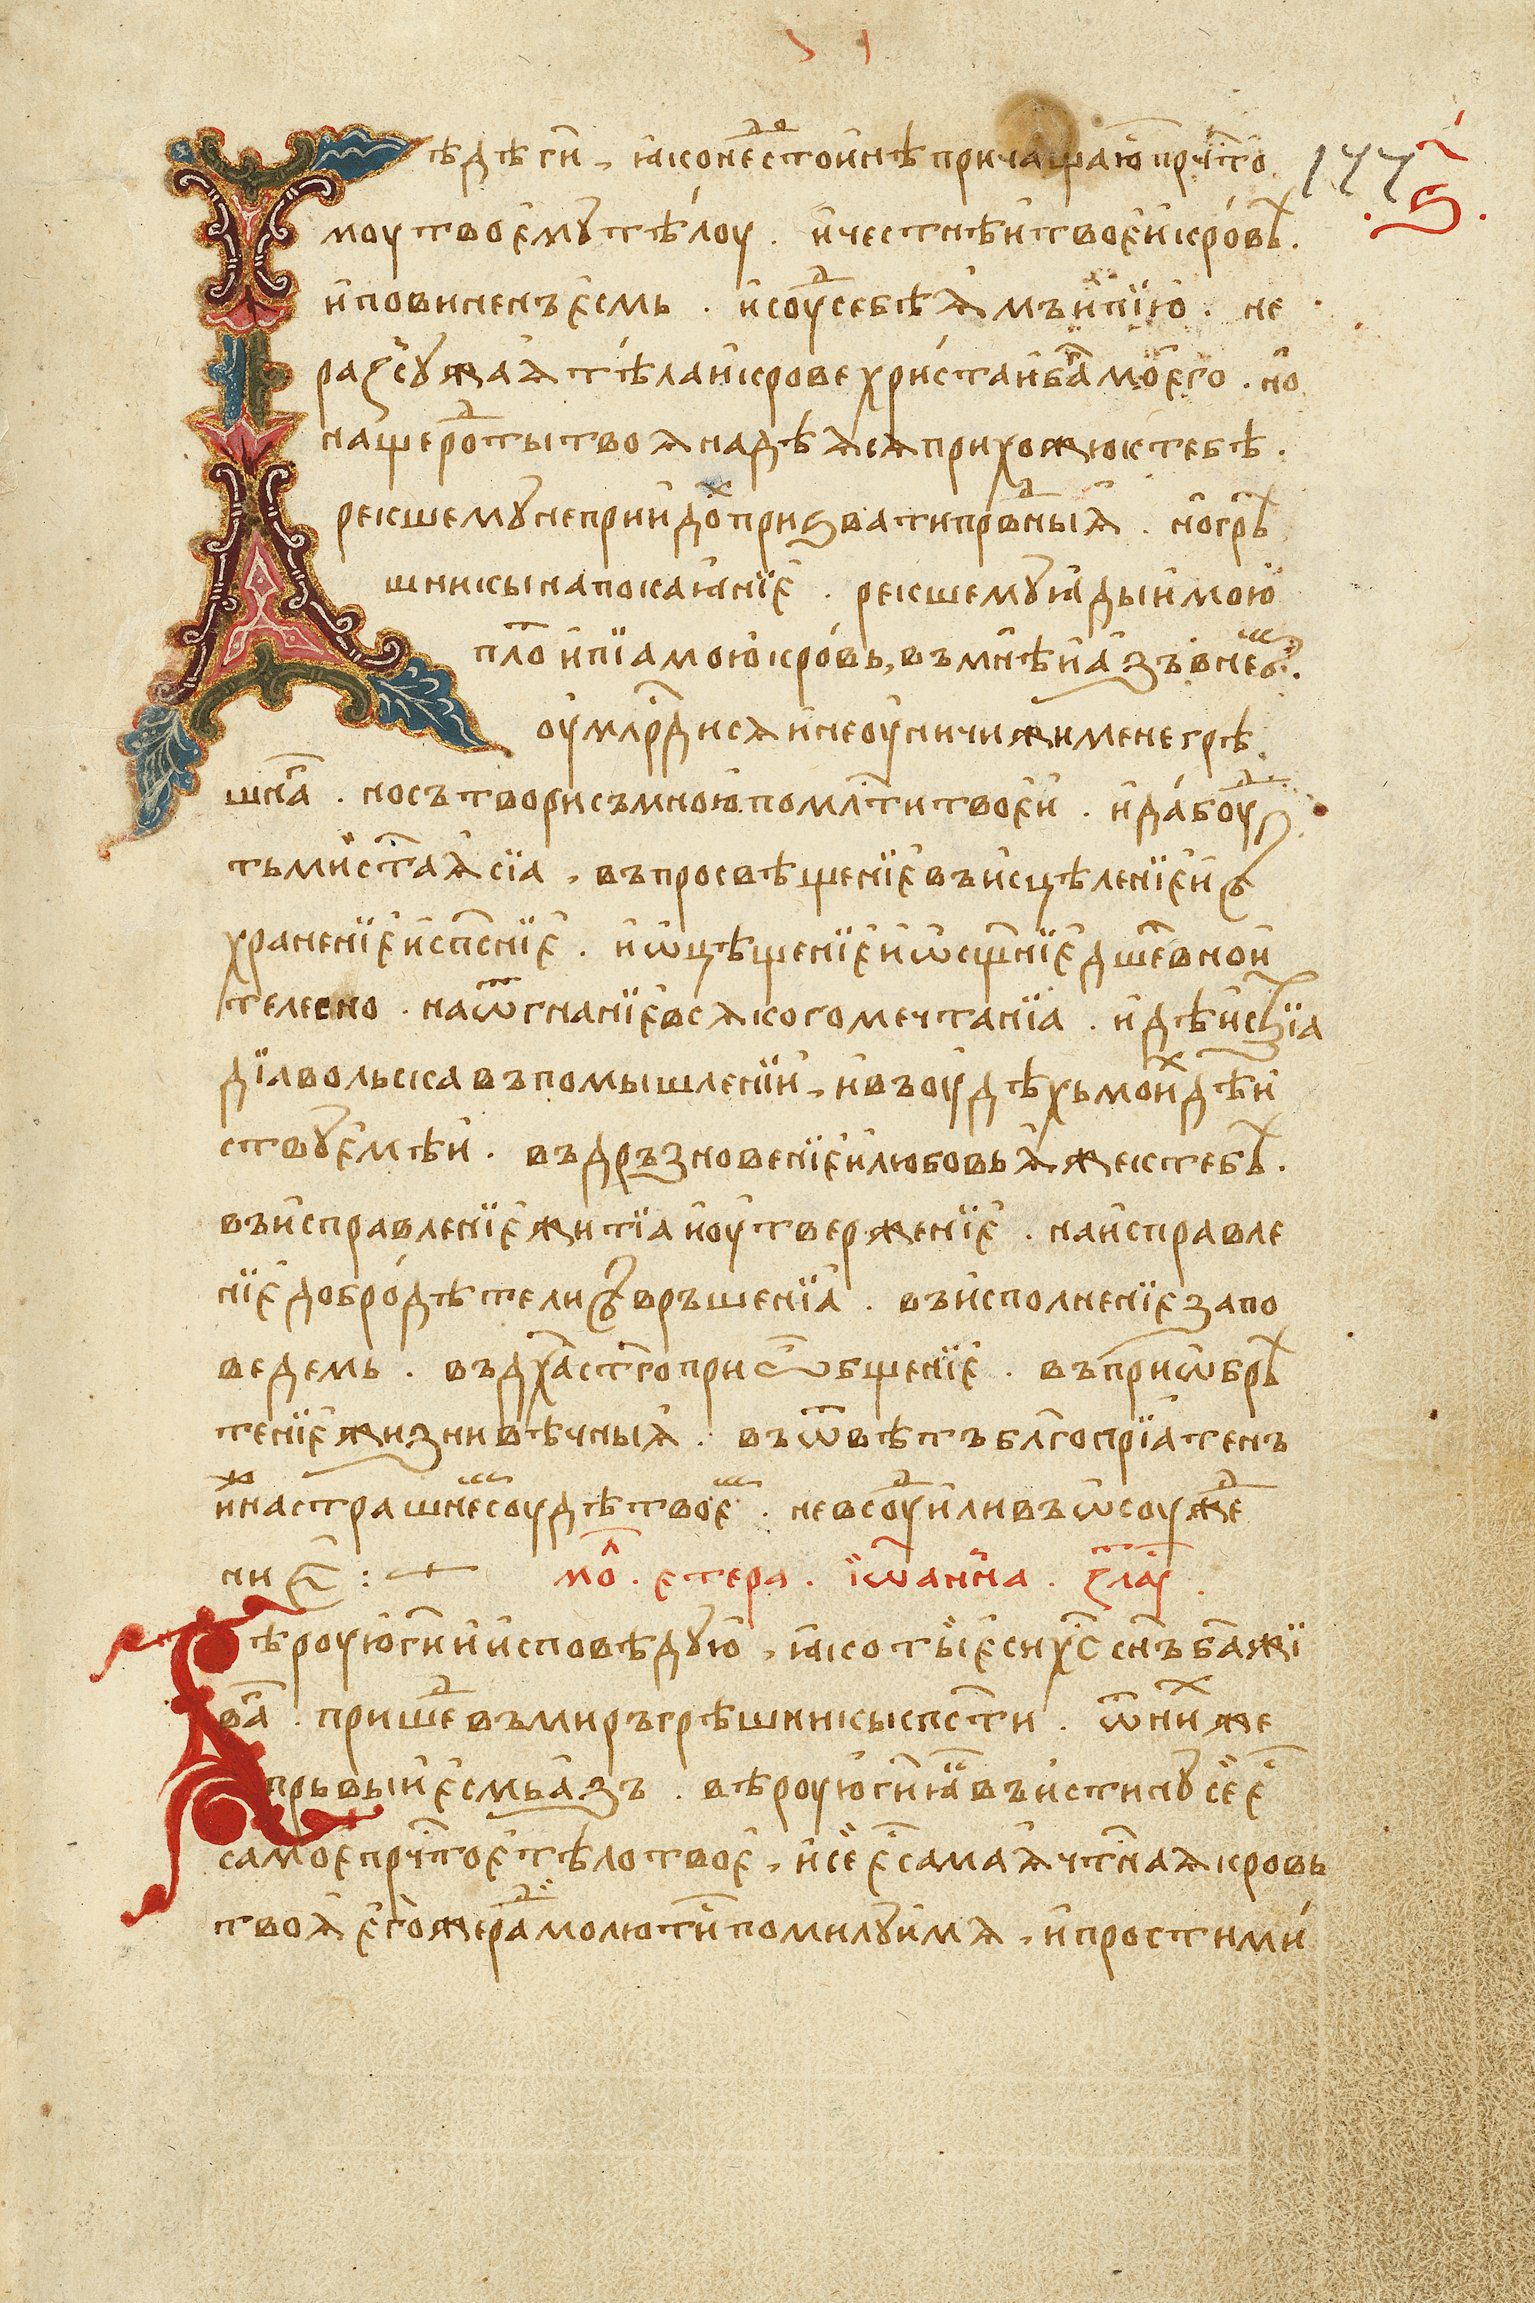 177
ѕ҃
Вѣдѣ гн҃и, ꙗко недⷭ҇отоинѣ причащаюⷭ҇ прчⷭ҇то
моу твоемꙋ тѣлоу. и честнѣи твоеи кровⷯ.
и повиненъ есмь. и соуⷣ себѣ ꙗмъ и пїю. не
разсꙋжаѧ тѣла и крове христа и бг҃а моего. но
на щероⷣты твоѧ надѣѧсѧ прихожю к тебѣ.
рекшемꙋ не прїидоⷯ призвати прⷣвныѧ. но грѣ
шникы на покаꙗнїе. рекшемꙋ ꙗдыи мою
плⷮо и пїа мою кровь, въ мнѣ и азъ в неⷨ.
оумлⷭ҇рдисѧ и не оуничижи мене грѣ
шнⷢ҇а. но сътвори съ мною по млⷭ҇ти твоеи. и да боуⷣ
ть ми ст҃аѧ сїа, въ просвѣщенїе въ исцѣленїе и съ
хранение и спⷭ҇нїе. и ѡцѣщенїе и ѡсщ҃нїе дш҃евно и
телесно. на ѿгнанїе всѧкого мечтанїа. и дѣиствїа
дїавольска въ помышленїи, и въ оудѣхъ моиⷯ дѣи
ствꙋемѣи. въ дръзновенїе и любовь ѧже к тебѣ.
въ исправленїе житїа и оутверженїе. на исправле
нїе добродѣтели съвръшенїа. въ исполненїе запо
ведемь. въ дх҃а ст҃го приѡбщенїе. въ приѡбрѣ
тенїе жизни вѣчныѧ. въ ѿвѣтъ блг҃опрїатенъ
иже на страшнеⷨ соудѣ твоеⷨ. не в соуⷣ или въ ѡсоужⷣе
ние: мⷧ҇о. етера. їѡанна. злаⷮ.
Вѣроую гн҃и и исповѣдꙋю, ꙗко ты еси хс҃ сн҃ъ ба҃ жї
ваⷢ҇. пришеⷣ въ миръ грѣшникы спⷭ҇ти. ѿ ниⷯже
прьвыи есмь азъ. вѣроую гн҃и ꙗⷦ въ истинꙋ се еⷭ҇
самое прчⷭ҇тое тѣло твое, и се еⷭ҇ самаѧ чтⷭ҇наѧ кровь
твоѧ егоже раⷣ молютисⷨ помилꙋи мѧ, и прости ми